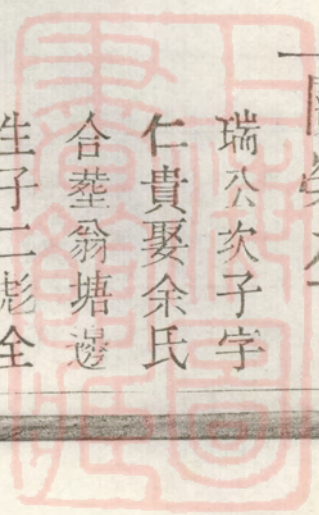 瑞公次子字
仁貴娶余氏
合塟翁塘邊
生子二彪全